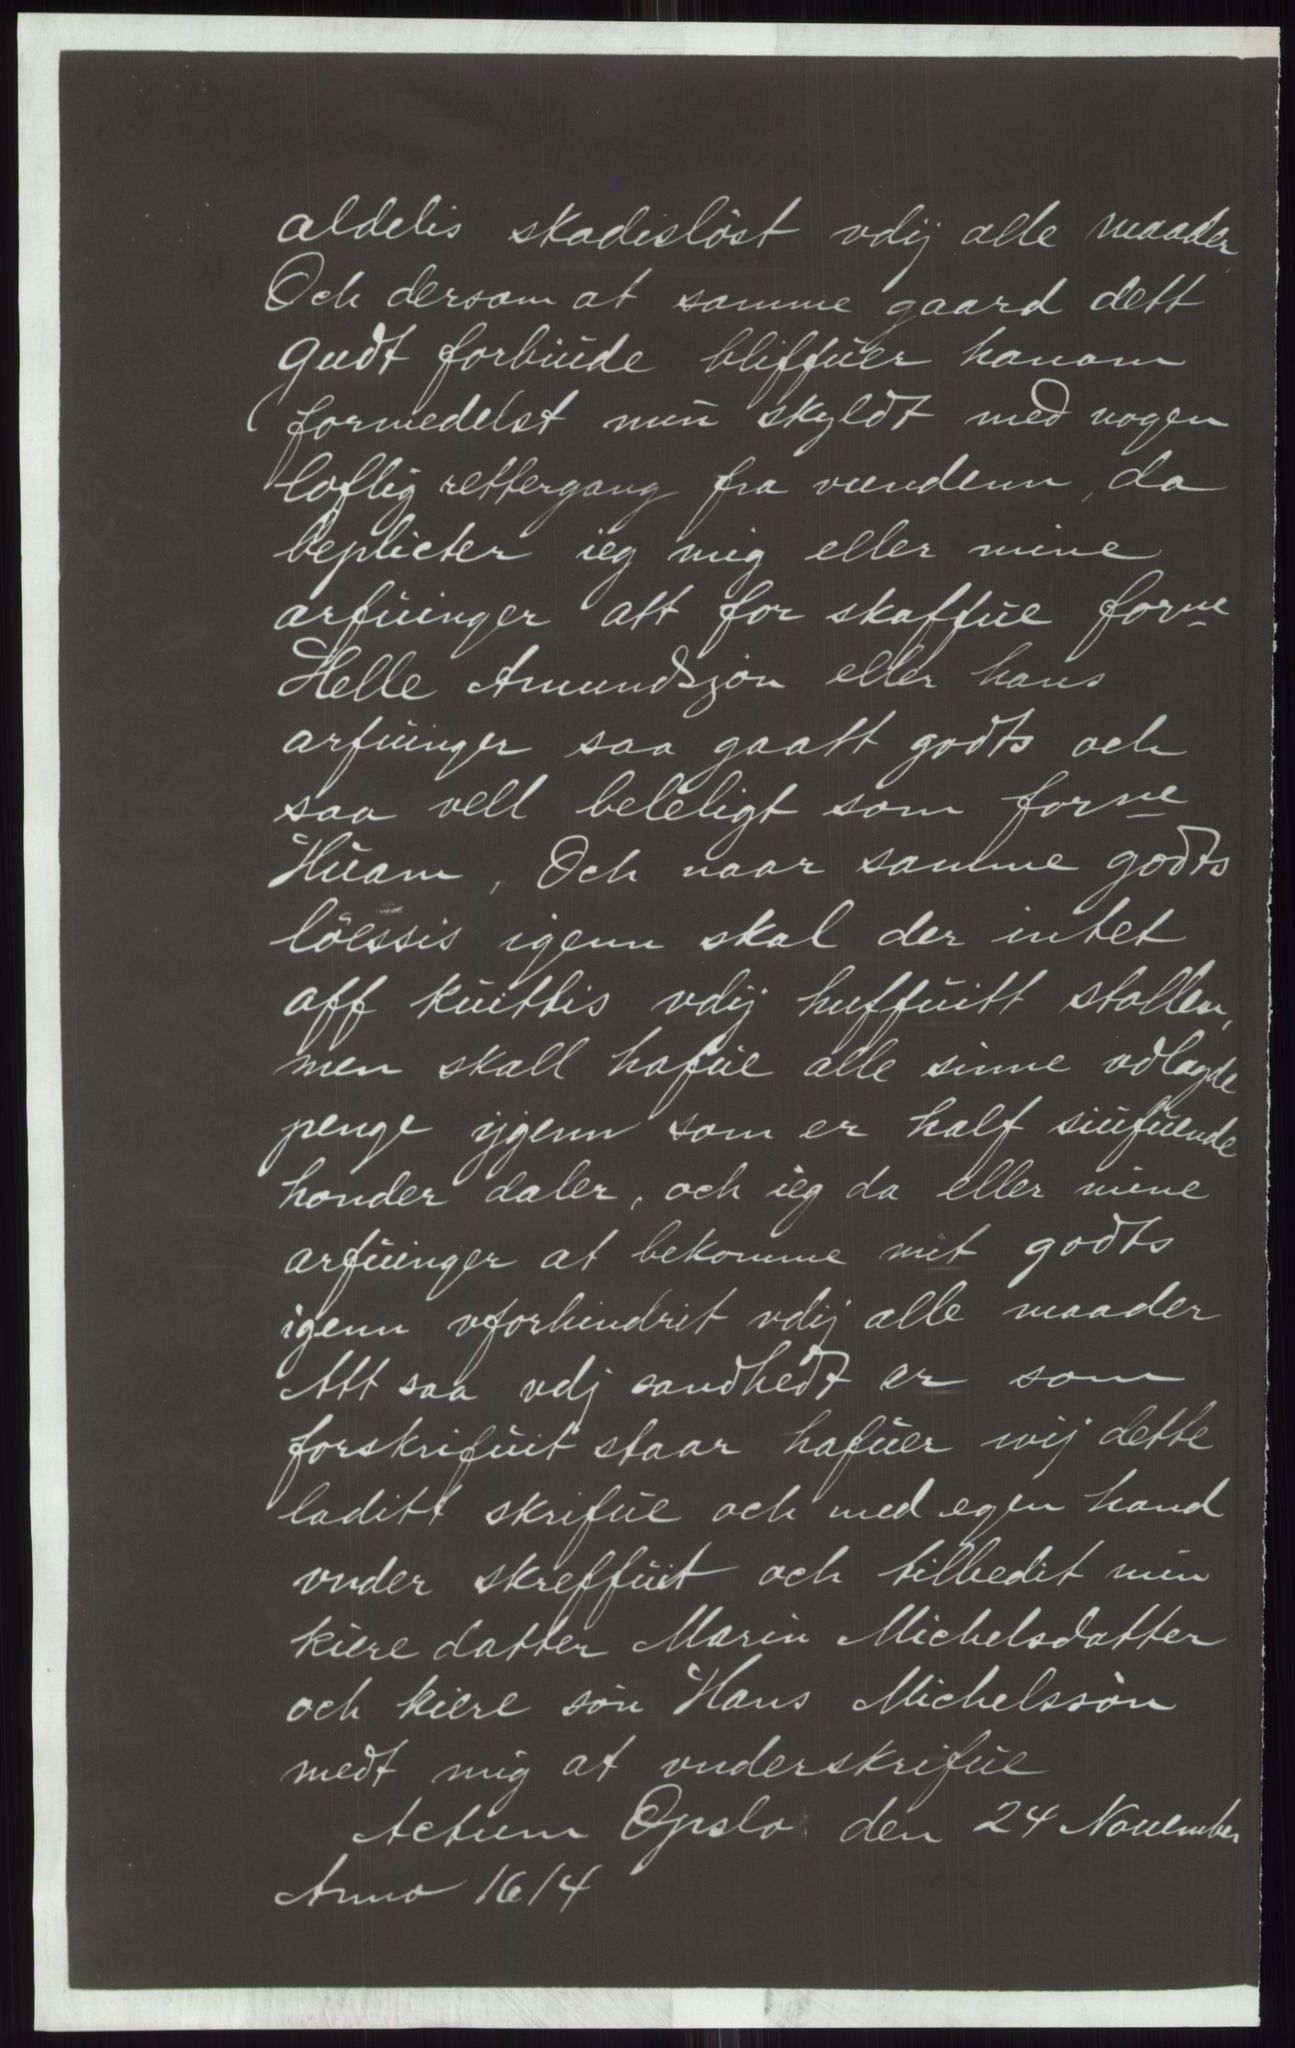 aldelis skadisløst vdij alle maader,
Och dersom at somme gaard dett
gudt forbiude bliffuer hanom
formedelst min skyldt med nogen
loflig rettergang fra vundenn, da
beplicter ieg mig eller mine
arfuinger att for skaffue forne
Helle Amundszøn eller hans
arfuinger saa gaatt godts och
saa vell beleligt som forne
Huam, Och naar samme godts
løessis igenn skal der intet
aff kuittis vdij huffuitt stollen,
men skall hafue alle sinne vdlagde
penge ijgenn som er half siufuende
honder daler, och ieg da eller mine
arfuinger at bekomme mit godts
igenn vforhindrit vdij alle maader
Att saa vdj sandhedt er som
forskrifuit staar hafuer wij dette
laditt skrifue och med egen hand
vnder skreffuit och tilbedit min
kiere datter Marin Michelsdatter
och kiere søn Hans Michelssøn
medt mig at vnderskrifue
Actum Opslo den 24 Nouember
Anno 1614